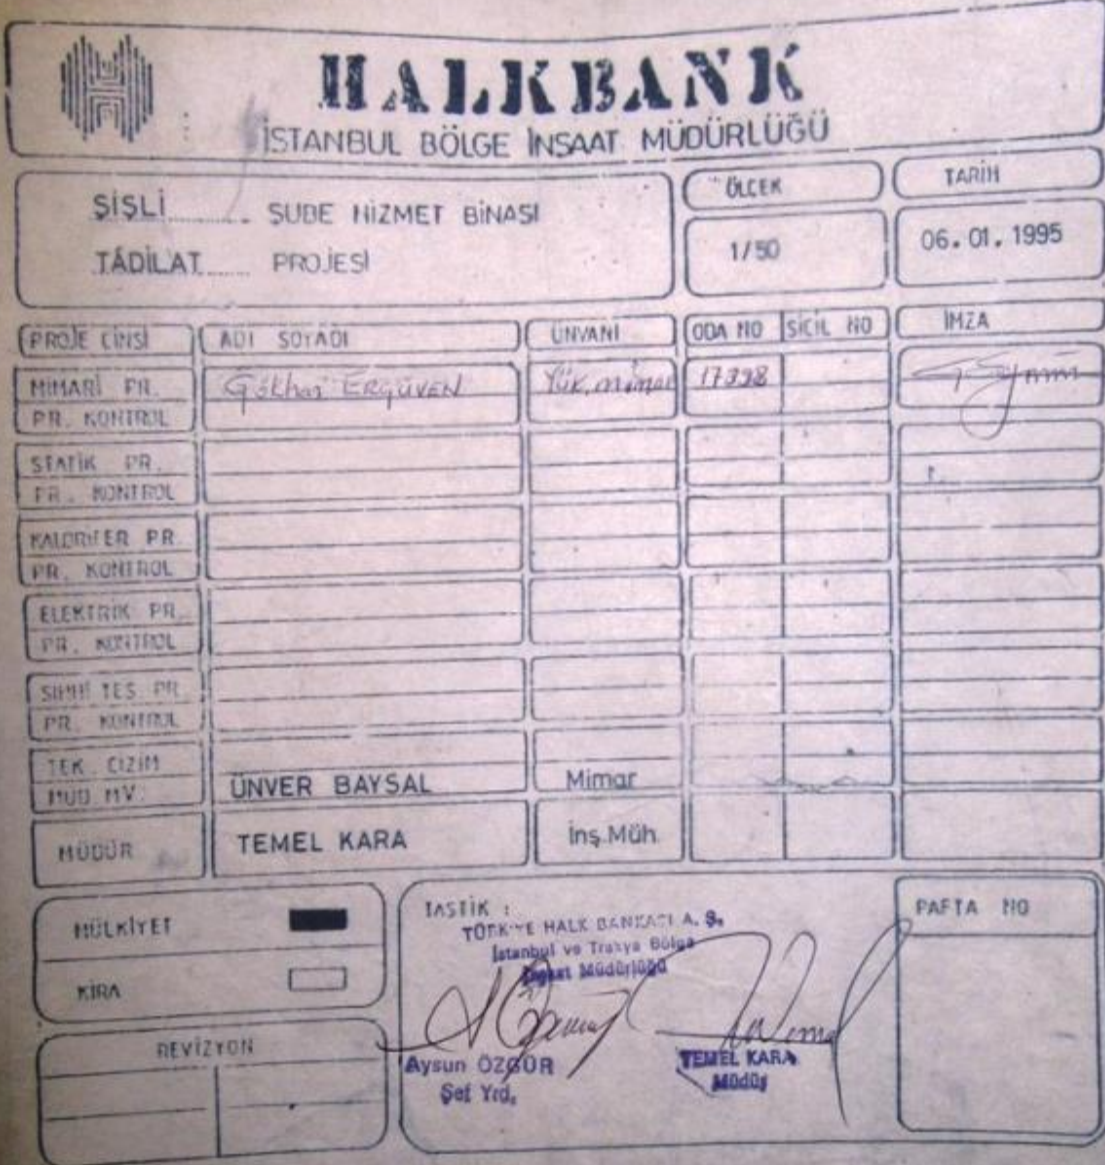 HALKBANK
İSTANBUL BÖLGE İNŞAAT MÜDÜRLÜĞÜ
ŞİŞLİ......... ŞUBE HİZMET BİNASI
TÂDİLAT....... PROJESİ
ÖLÇEK
1/50
TARİH
06.01.1995
PROJE CİNSİ ADI SOYADI ÜNVANI ODA NO SİCİL NO İMZA
MİMARİ PR. Gökhan ERGÜVEN Yük. mimar 17398
PR. KONTROL
STATİK PR.
PR. KONTROL
KALORİFER PR.
PR. KONTROL
ELEKTRİK PR.
PR. KONTROL
SIHHİ TES. PR.
PR. KONTROL
TEK. ÇİZİM
MÜD. MV. ÜNVER BAYSAL Mimar
MÜDÜR TEMEL KARA İnş.Müh.
MÜLKİYET
KİRA
REVİZYON
TASTİK :
TÜRKİYE HALK BANKASI A. Ş.
İstanbul ve Trakya Bölge
İnşaat Müdürlüğü
Aysun ÖZGÜR
Şef Yrd.
TEMEL KARA
Müdür
PAFTA NO